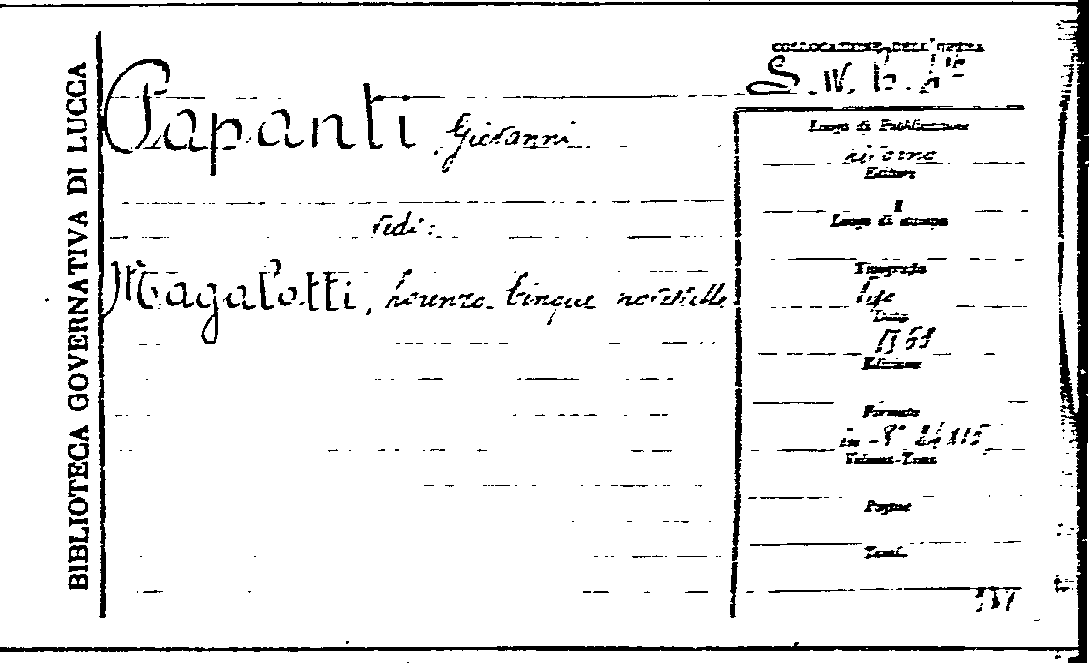 BIBLIOTECA GOVERNATIVA DI LUCCA
COLLOCAZIONE DELL'OPERA
Papanti, Giovanni
vedi:
Magalotti, Lorenzo. Cinque novelle
Luogo di Pubblicazione
Livorno
Editore
Luogo di stampa
Tipografia
Data
Edizione
Formato
in-8°
Volumi-Tomi
Pagine